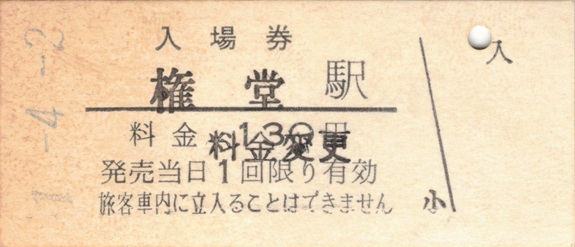 入場券
権堂駅
料金 130円
料金変更
発売当日1回限り有効
旅客車内に立入ることはできません
入
小
-4.-2